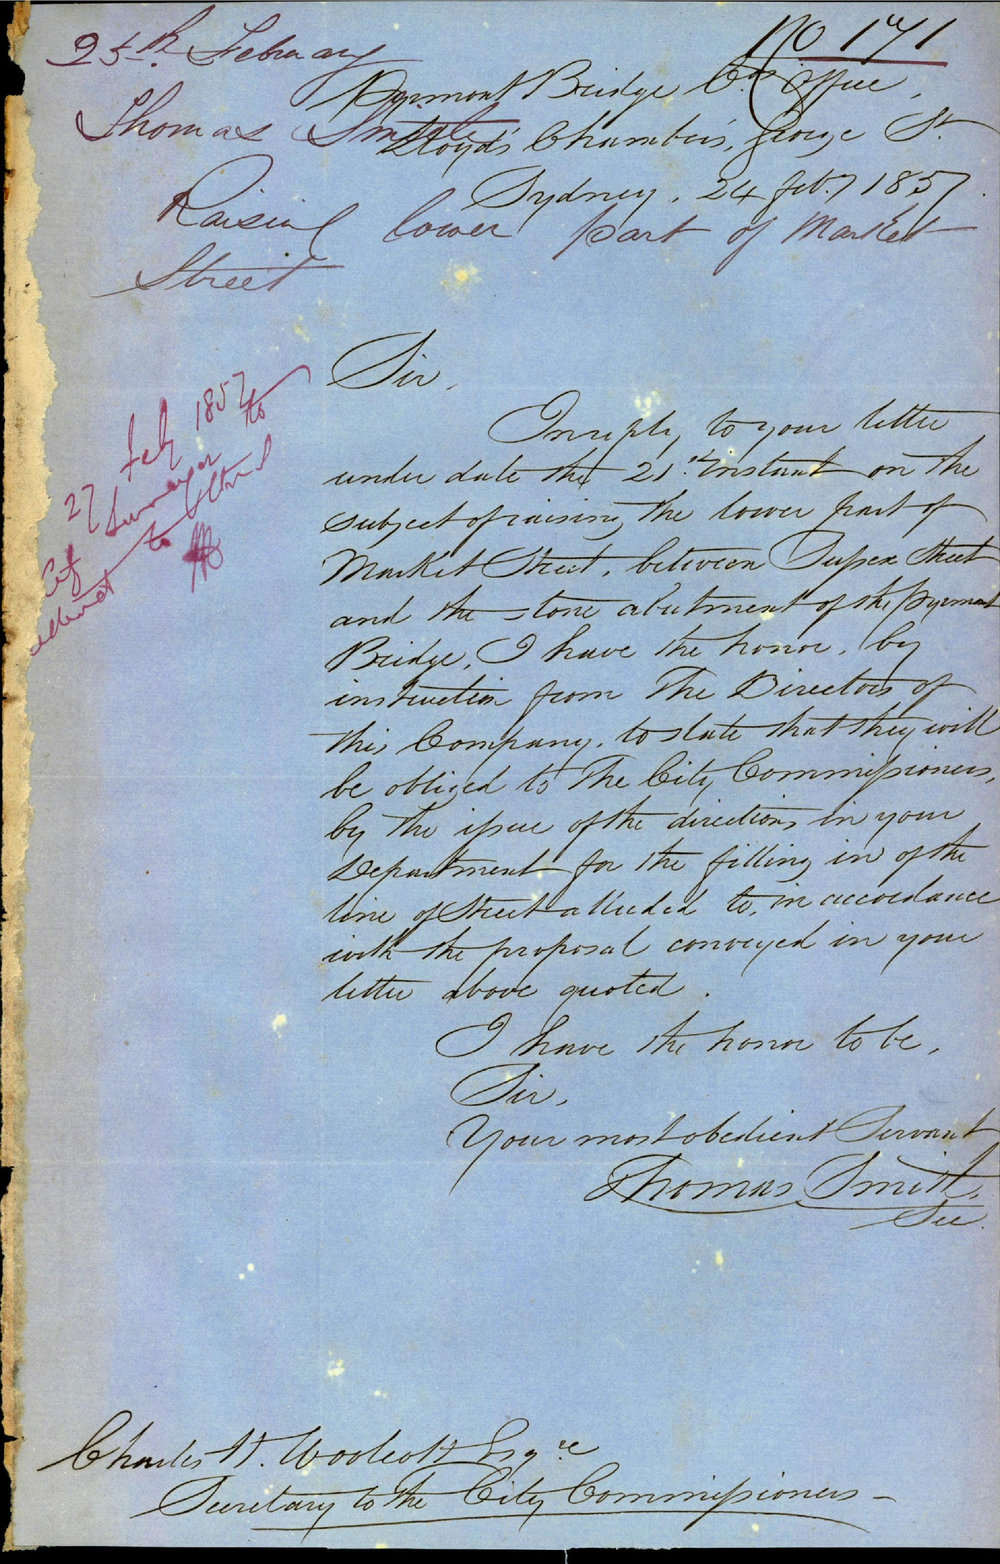 No 171
25th February
Pyrmont Bridge Co's Office,
Thomas Smith
Lloyd's Chambers, George St.
Sydney, 24 Feby 1857.
Raising lower part of Market
Street
Sir,
In reply to your letter
under date the 21st instant on the
subject of raising the lower part of
Market Street, between Sussex Street
and the stone abutment of the Pyrmont
Bridge, I have the honor, by
instruction from The Directors of
this Company, to state that they will
be obliged to The City Commissioners,
by the issue of the directions in your
Department for the filling in of the
line of Street alluded to, in accordance
with the proposal conveyed in your
letter above quoted.
I have the honor to be,
Sir,
Your most obedient Servant
Thomas Smith,
Sec.
27 Feby 1857
City Surveyor to
to
Charles H. Woolcott Esqre
Secretary to the City Commissioners